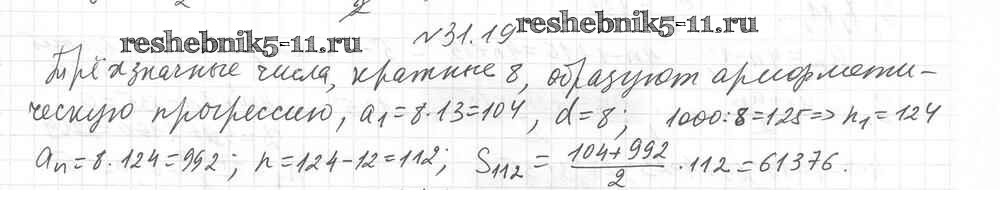 №31.19
reshebnik5-11.ru
reshebnik5-11.ru
Трёхзначные числа, кратные 8, образуют арифмети-
ческую прогрессию, a₁=8·13=104, d=8; 1000:8=125=>n₁=124
aₙ=8·124=992; n=124-12=112; S₁₁₂ = (104+992)/2 ·112=61376.